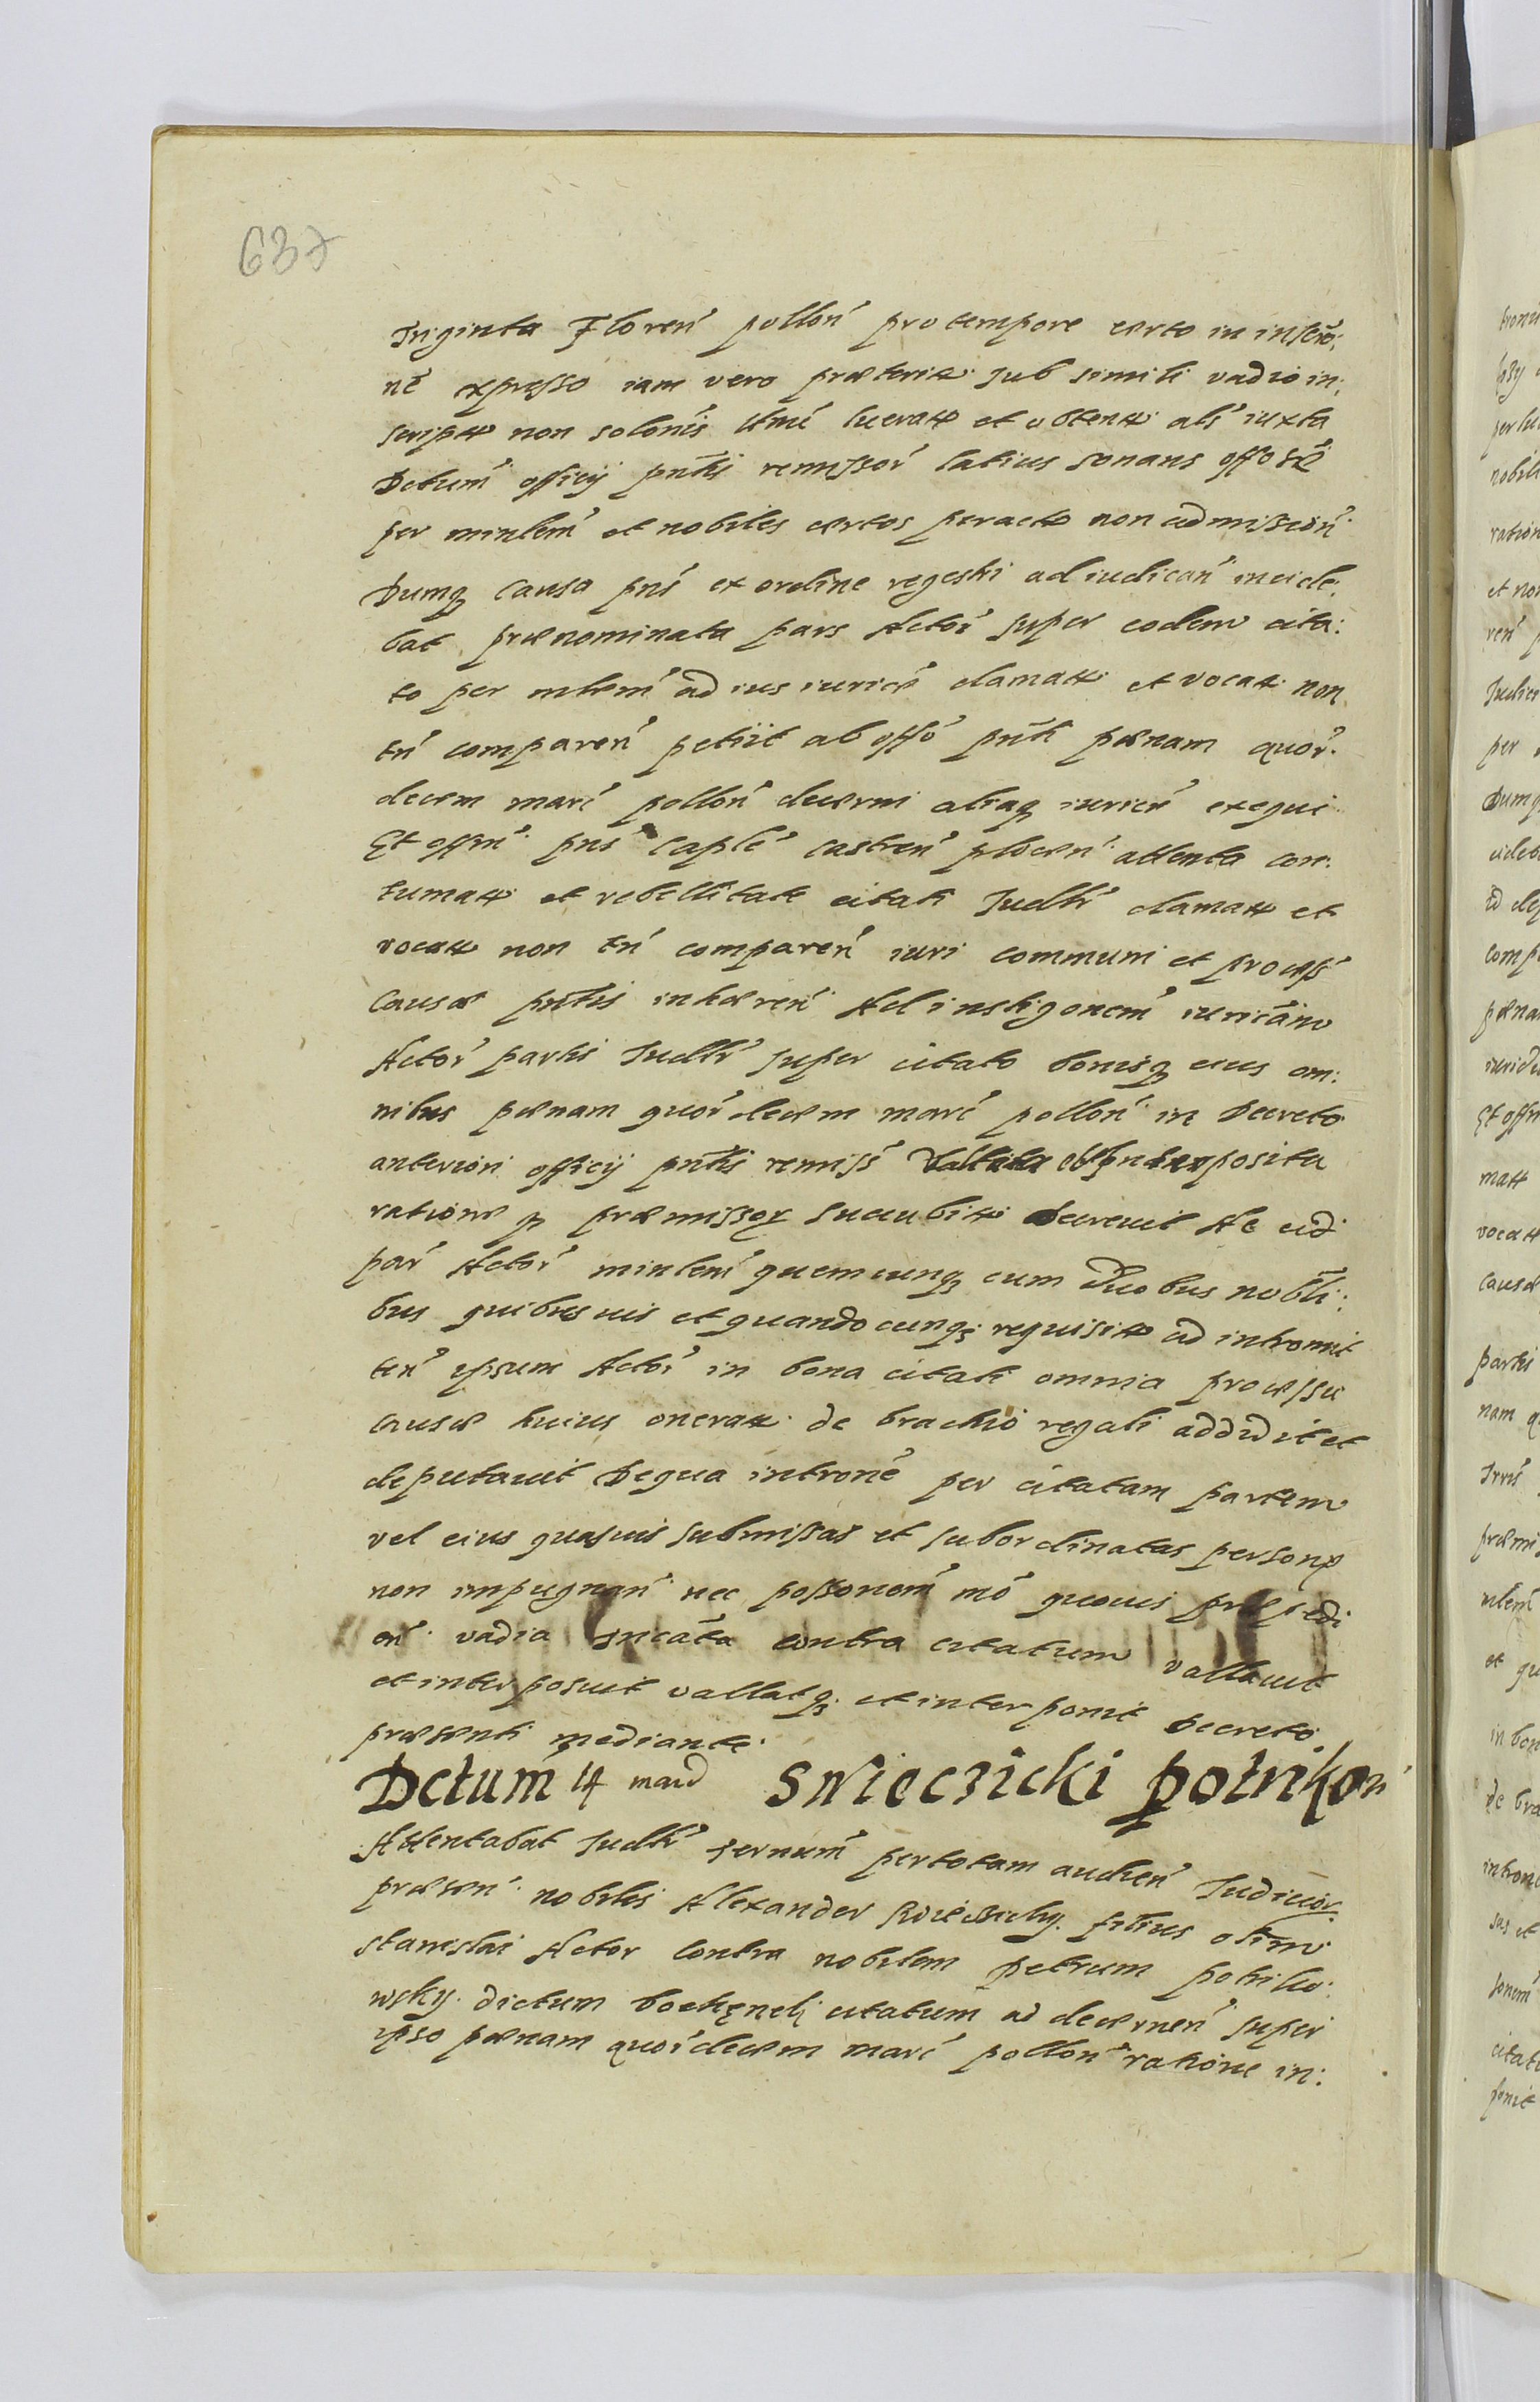 637
Triginta Floren̄ pollon̄ pro tempore certo in inscrō:
nē expresso iam vero præterit: sub simili vadio in:
script non solonis
Dctum officij pntis remissor̄ latius sonans offo
per minlem̄ et nobiles certos peract non admission̄
Dumq causa pns̄ ex ordine regestri ad iudican̄ incide:
bat prænominata pars Actor̄ super eodem cita:
to per mlnem̄ ad ius iuricē clamat et vocat non
tn̄ comparen̄ petiit ab offō pnti pænam quor̄
decem marc̄ pollon̄ decerni aliaq iuricē exequi
Et offm̄ pns̄ Caplē castren̄ plocen̄ attenta con:
tumat et rebellitate citati Judtr̄ clamat et
vocat non tn̄ comparen̄ iuri communi et process̄
Causæ pntis inhæren̄ Ad instigonem̄ iuricam
Actor̄ partis Judtr̄ super citato bonisq eius om:
nibus pænam quor̄ decem marc̄ pollon̄ in Decreto
anteriori officij pntis remiss̄ Vallata et interposita
ratione præmissor succubit decrevit Ac eid
par̄ Actor̄ minlem̄ quemcunq cum Duobus nobli:
bus quibusuis et quandocunq requisit ad intromit
ten̄ ipsum Actor̄ in bona citati omnia processu
causæ huius onerat de brachio regali addidit et
deputavit Dequa intronē per citatam partem
vel eius quasuis submissas et subordinatas person
non impugnan̄ nec possonem̄ mō quovis præpedi
en̄ vadia Tricata contra citatum vallavit
et interposuit vallatq et interponit Decreto
præsenti mediante
Dctum 14 marc Swieczicki potrikow
Attentabat Judtr̄ ternum̄ per totam audien̄ Judicior
præsen̄ nobilis Alexander Swieczicky filius olim
Stanislai Actor contra nobilem petrum potriko:
wsky dictum bochęnek citatum ad decernen̄ super
ipso pænam quor̄ decem marc̄ pollon̄ ratione in: